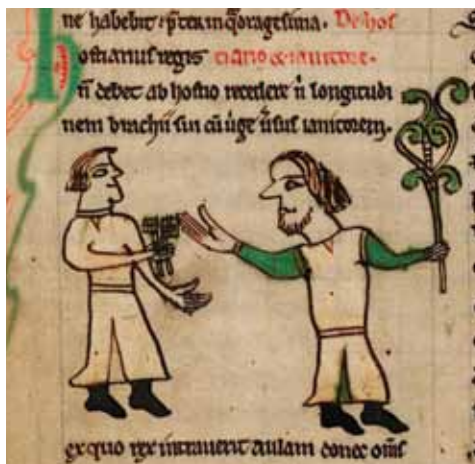 ne habebit · p̄ter in q̄dragesima. De hos
hostiarius regis tiario & ianitore.
n̄ debet ab hostio recedere n̄ longitudi
nem brachii sui cū u̓ge ūsus ianitorem.
ex quo rex intrauerit aulam donec om̄s